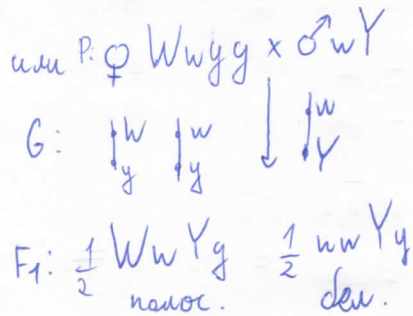 или P: ♀ Wwyy × ♂ wY
G: W y w y w Y
F₁: 1/2 WwYy 1/2 wwYy
полос. бел.